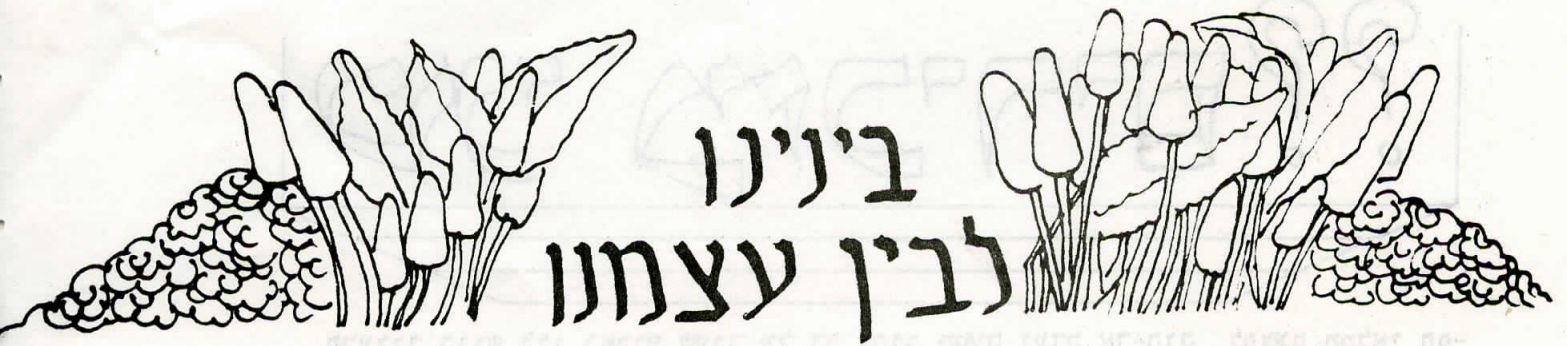 בינינו
לבין עצמנו